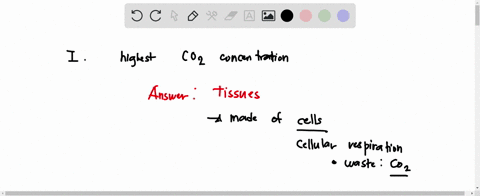 I. highest CO2 concentration
Answer: tissues
→ made of cells
Cellular respiration
• waste: CO2